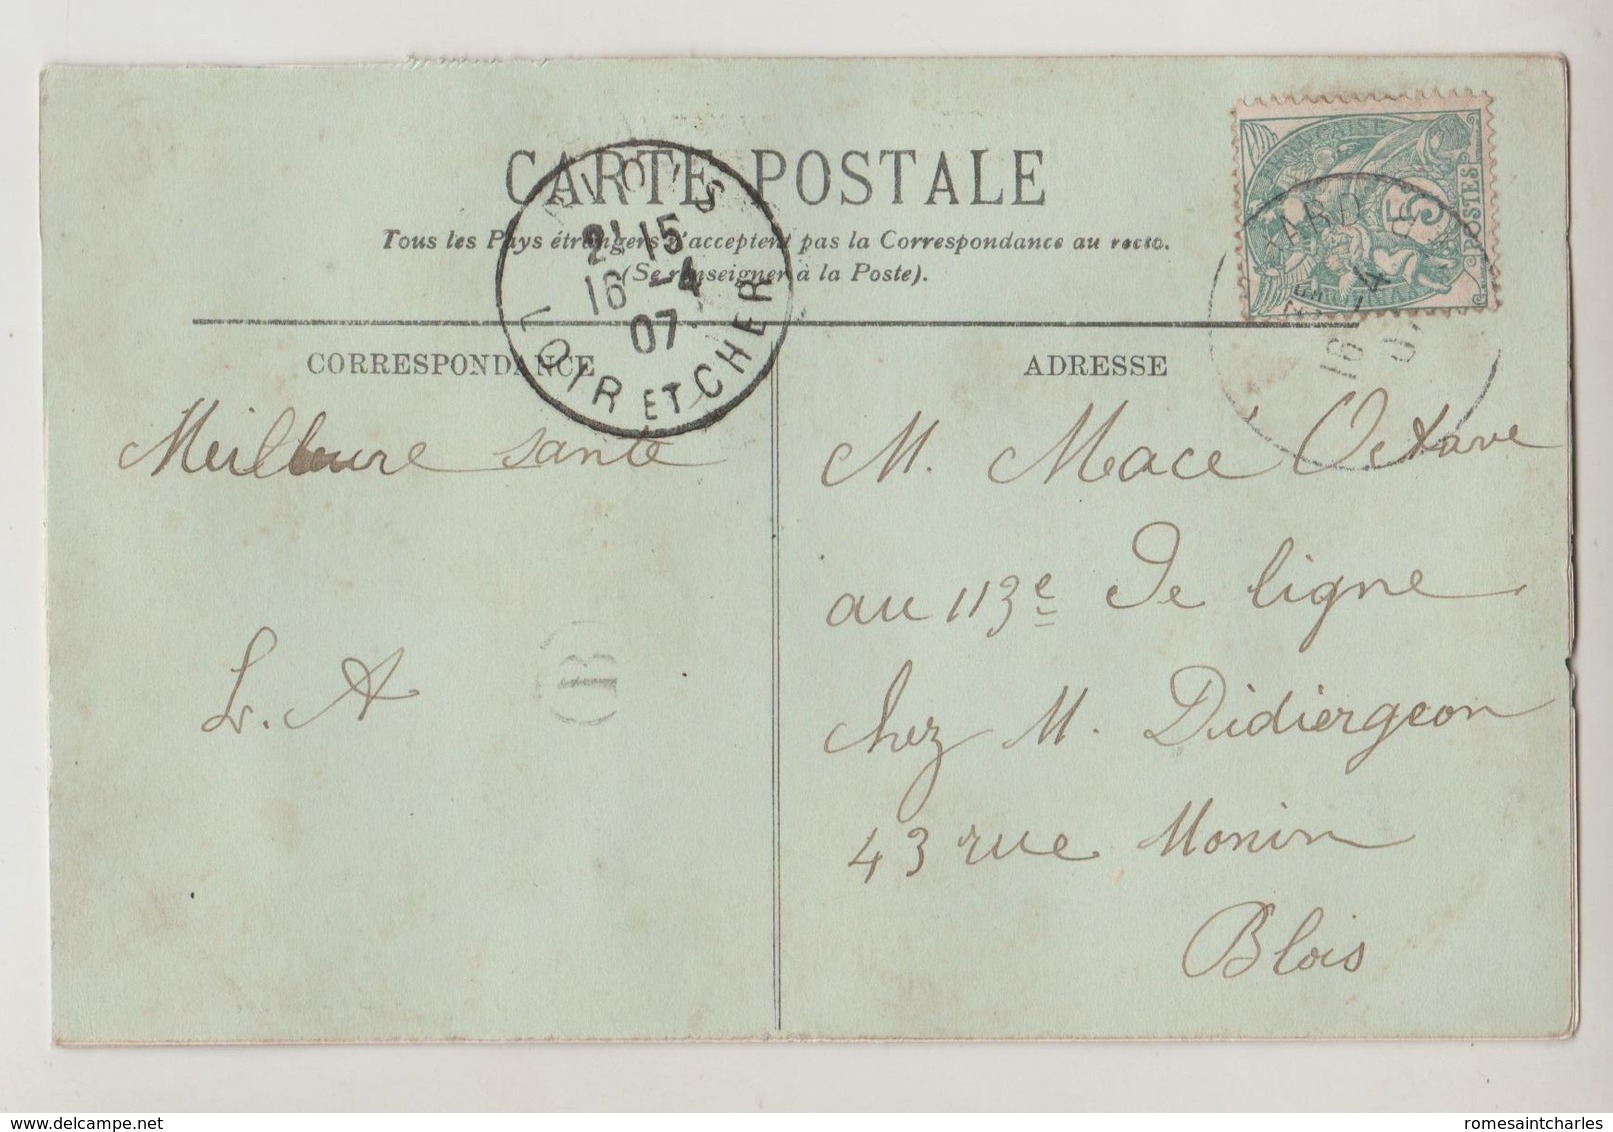 CARTE POSTALE
Tous les Pays étrangers n'acceptent pas la Correspondance au recto.
(Se renseigner à la Poste).
CORRESPONDANCE
ADRESSE
FRANÇAISE
5
POSTES
21 15
16 -4
07
LOIR ET CHER
16 -4
Meilleure santé
L. A
B
M. Mace Octave
au 113e De ligne
chez M. Didiergeon
43 rue Monin
Blois
romesaintcharles